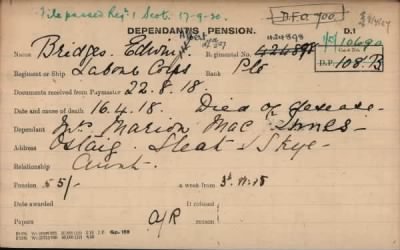 File passed Reg. 1 Scot. 17-9-30.
D.F.O. 700.
DEPENDANTS PENSION.
D.1
Name Bridges Edwin
Regimental No. 424898
424898
10690
Regiment or Ship Labour Corps
Rank Pte
D.P. 108.B
Documents received from Paymaster 22.8.18.
Date and cause of death 16.4.18. Died of disease
Dependant Mrs Marion Mac Innes
Address Ostaig. Sleat Skye
Relationship Aunt.
Pension 5 5/- a week from
Date awarded
Papers
A/R
If refused
reason for
refusal